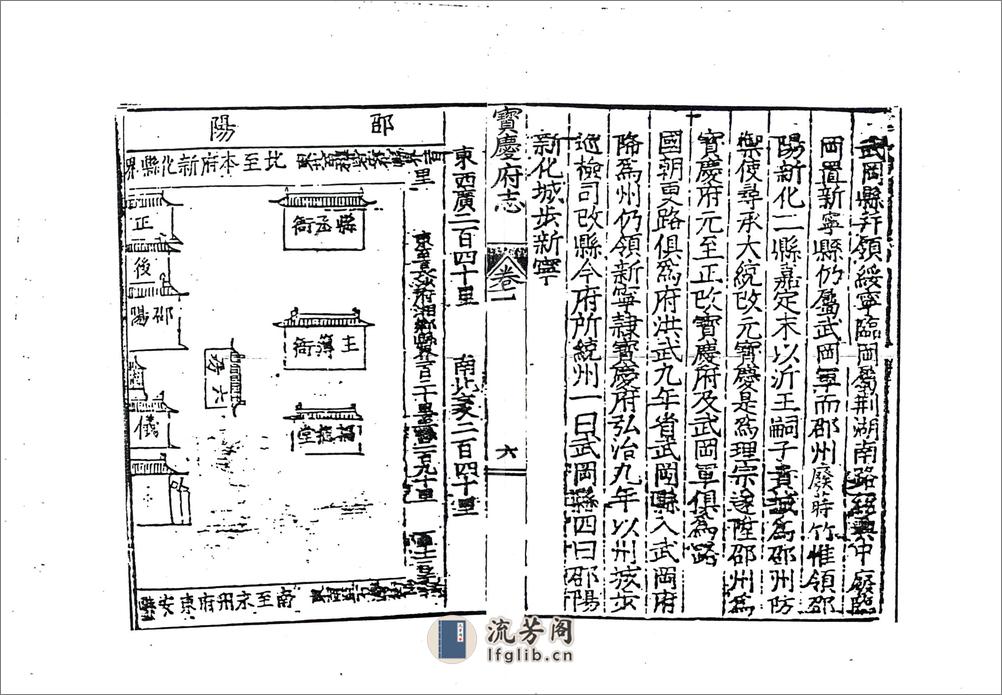 武岡縣并領綏寧臨岡屬荊湖南路紹興中廢臨
岡置新寧縣仍屬武岡軍而郡州廢蒔竹惟領邵
陽新化二縣嘉定末以沂王嗣子貴誠為邵州防
禦使尋承大統改元寶慶是為理宗遂陞邵州為
寶慶府元至正改寶慶府及武岡軍俱為路
國朝更路俱為府洪武九年省武岡縣入武岡府
降為州仍領新寧隷寶慶府弘治九年以州城步
巡檢司改縣今府所統州一曰武岡縣四曰邵陽
新化城步新寧
寶慶府志
卷一
六
東西廣二百四十里
南北袤二百四十里
邵陽
北至本府新化縣界
里
縣丞衙
主簿衙
正
後
邵陽
六
儀
南至永州府東安縣
流芳阁
lfglib.cn